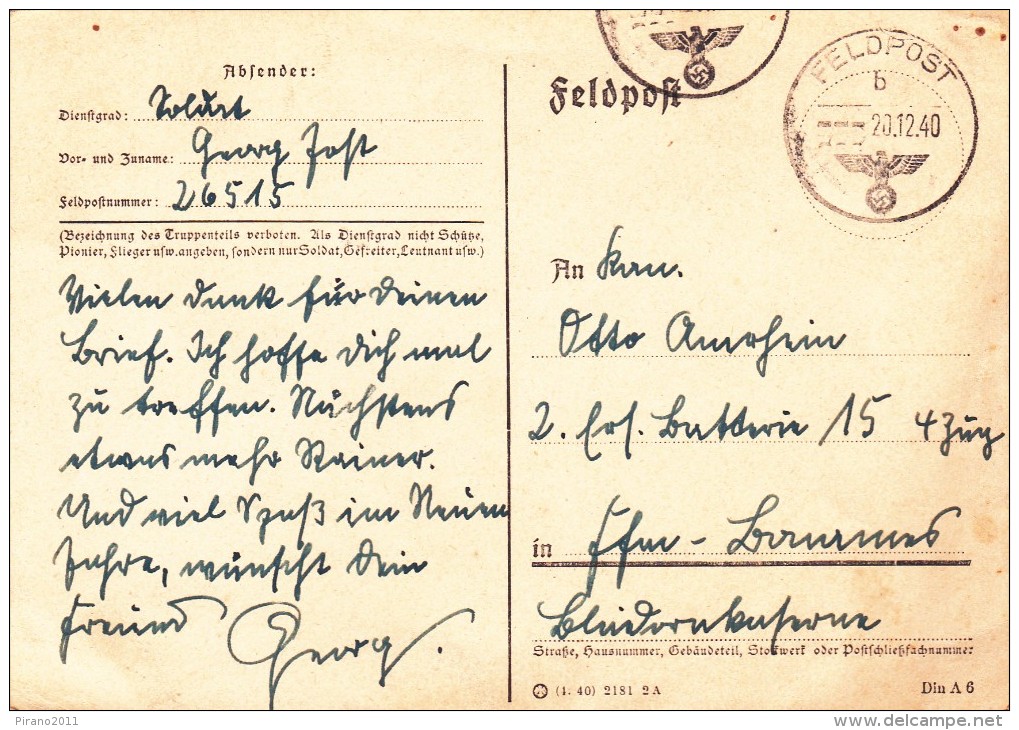 Absender:
Dienstgrad: Soldat
Vor- und Zuname: Georg Jost
Feldpostnummer: 26515
(Bezeichnung des Truppenteils verboten. Als Dienstgrad nicht Schütze,
Pionier, Flieger usw. angeben, sondern nur Soldat, Gefreiter, Leutnant usw.)
Vielen Dank für Deinen
Brief. Ich hoffe Dich mal
zu treffen. Nächstens
etwas mehr
Und viel Spaß im Neuen
Jahre, wünscht Dein
Freund
Georg.
Feldpost
FELDPOST
b
20.12.40
An Kan.
Otto Amrhein
2. Ers. Batterie 15 4 Zug
in Ffm - Bonames
Straße, Hausnummer, Gebäudeteil, Stockwerk oder Postschließfachnummer
(4. 40) 2181 2 A
Din A 6
Pirano2011
www.delcampe.net